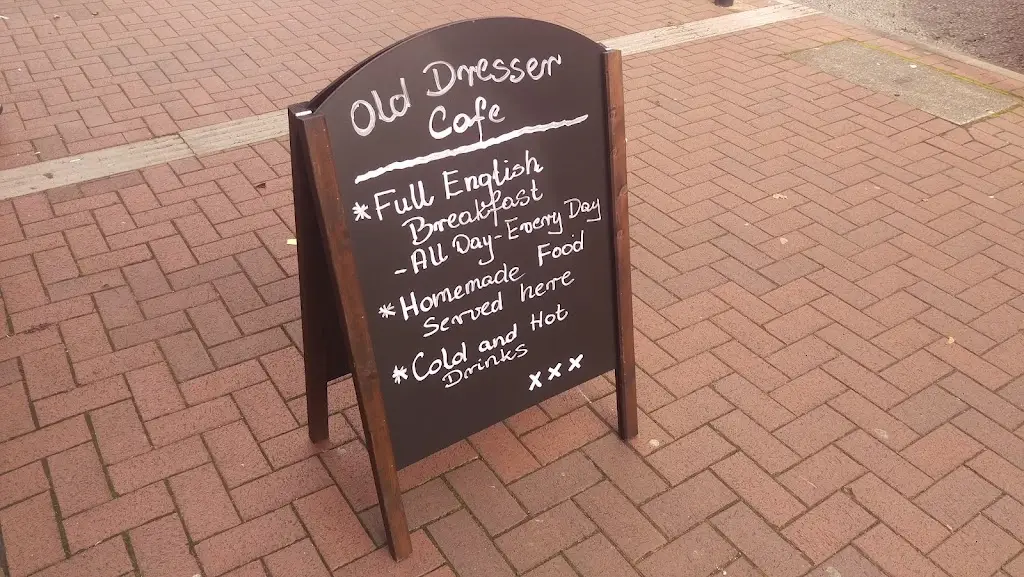 Old Dresser
Cafe
*Full English
Breakfast
-All Day-Every Day
*Homemade Food
Served here
*Cold and Hot
Drinks
xxx